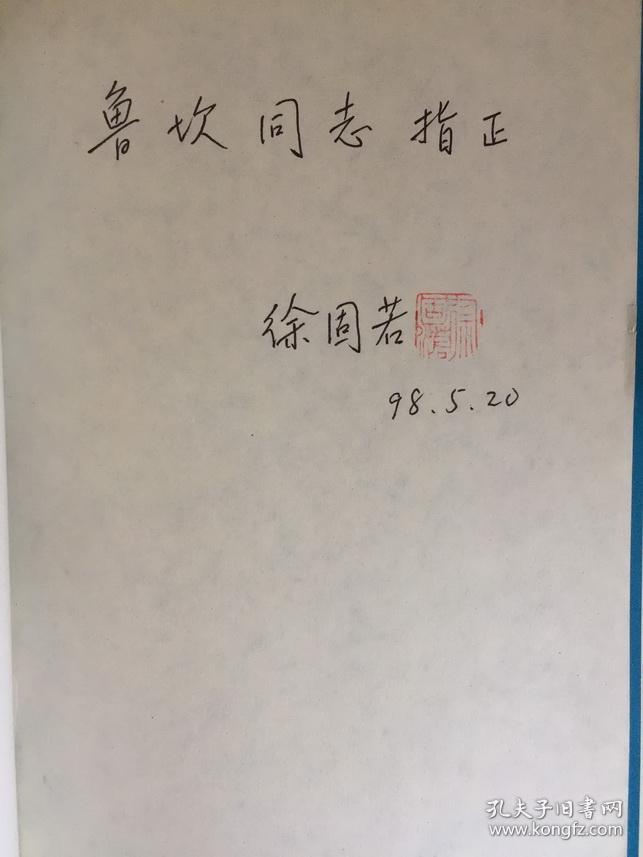 鲁坎同志指正
徐固若
98.5.20
孔夫子旧书网
www.kongfz.com